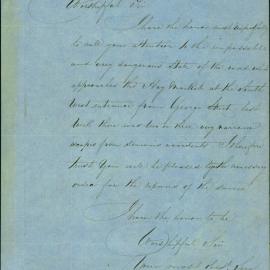 Worshipful Sir
I have the honor most respectfully
to call your attention to the impassable
and very dangerous state of the road which
approaches the Hay Market at the South
West entrance from George Street last
week there was two or three very narrow
escapes from serious accidents I therefore
trust You will be pleased to give necessary
order for the repairs of the same
I have the honor to be
Worshipful Sir
Your most obedt